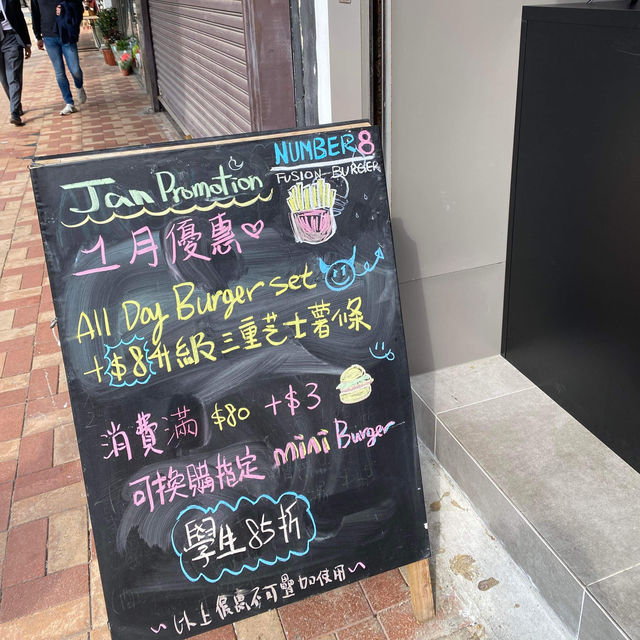 NUMBER 8
FUSION BURGER
Jan Promotion
1月優惠
All Day Burger set
+$8升級三重芝士薯條
消費滿 $80 +$3
可換購指定 mini Burger
學生85折
~以上優惠不可疊加使用~